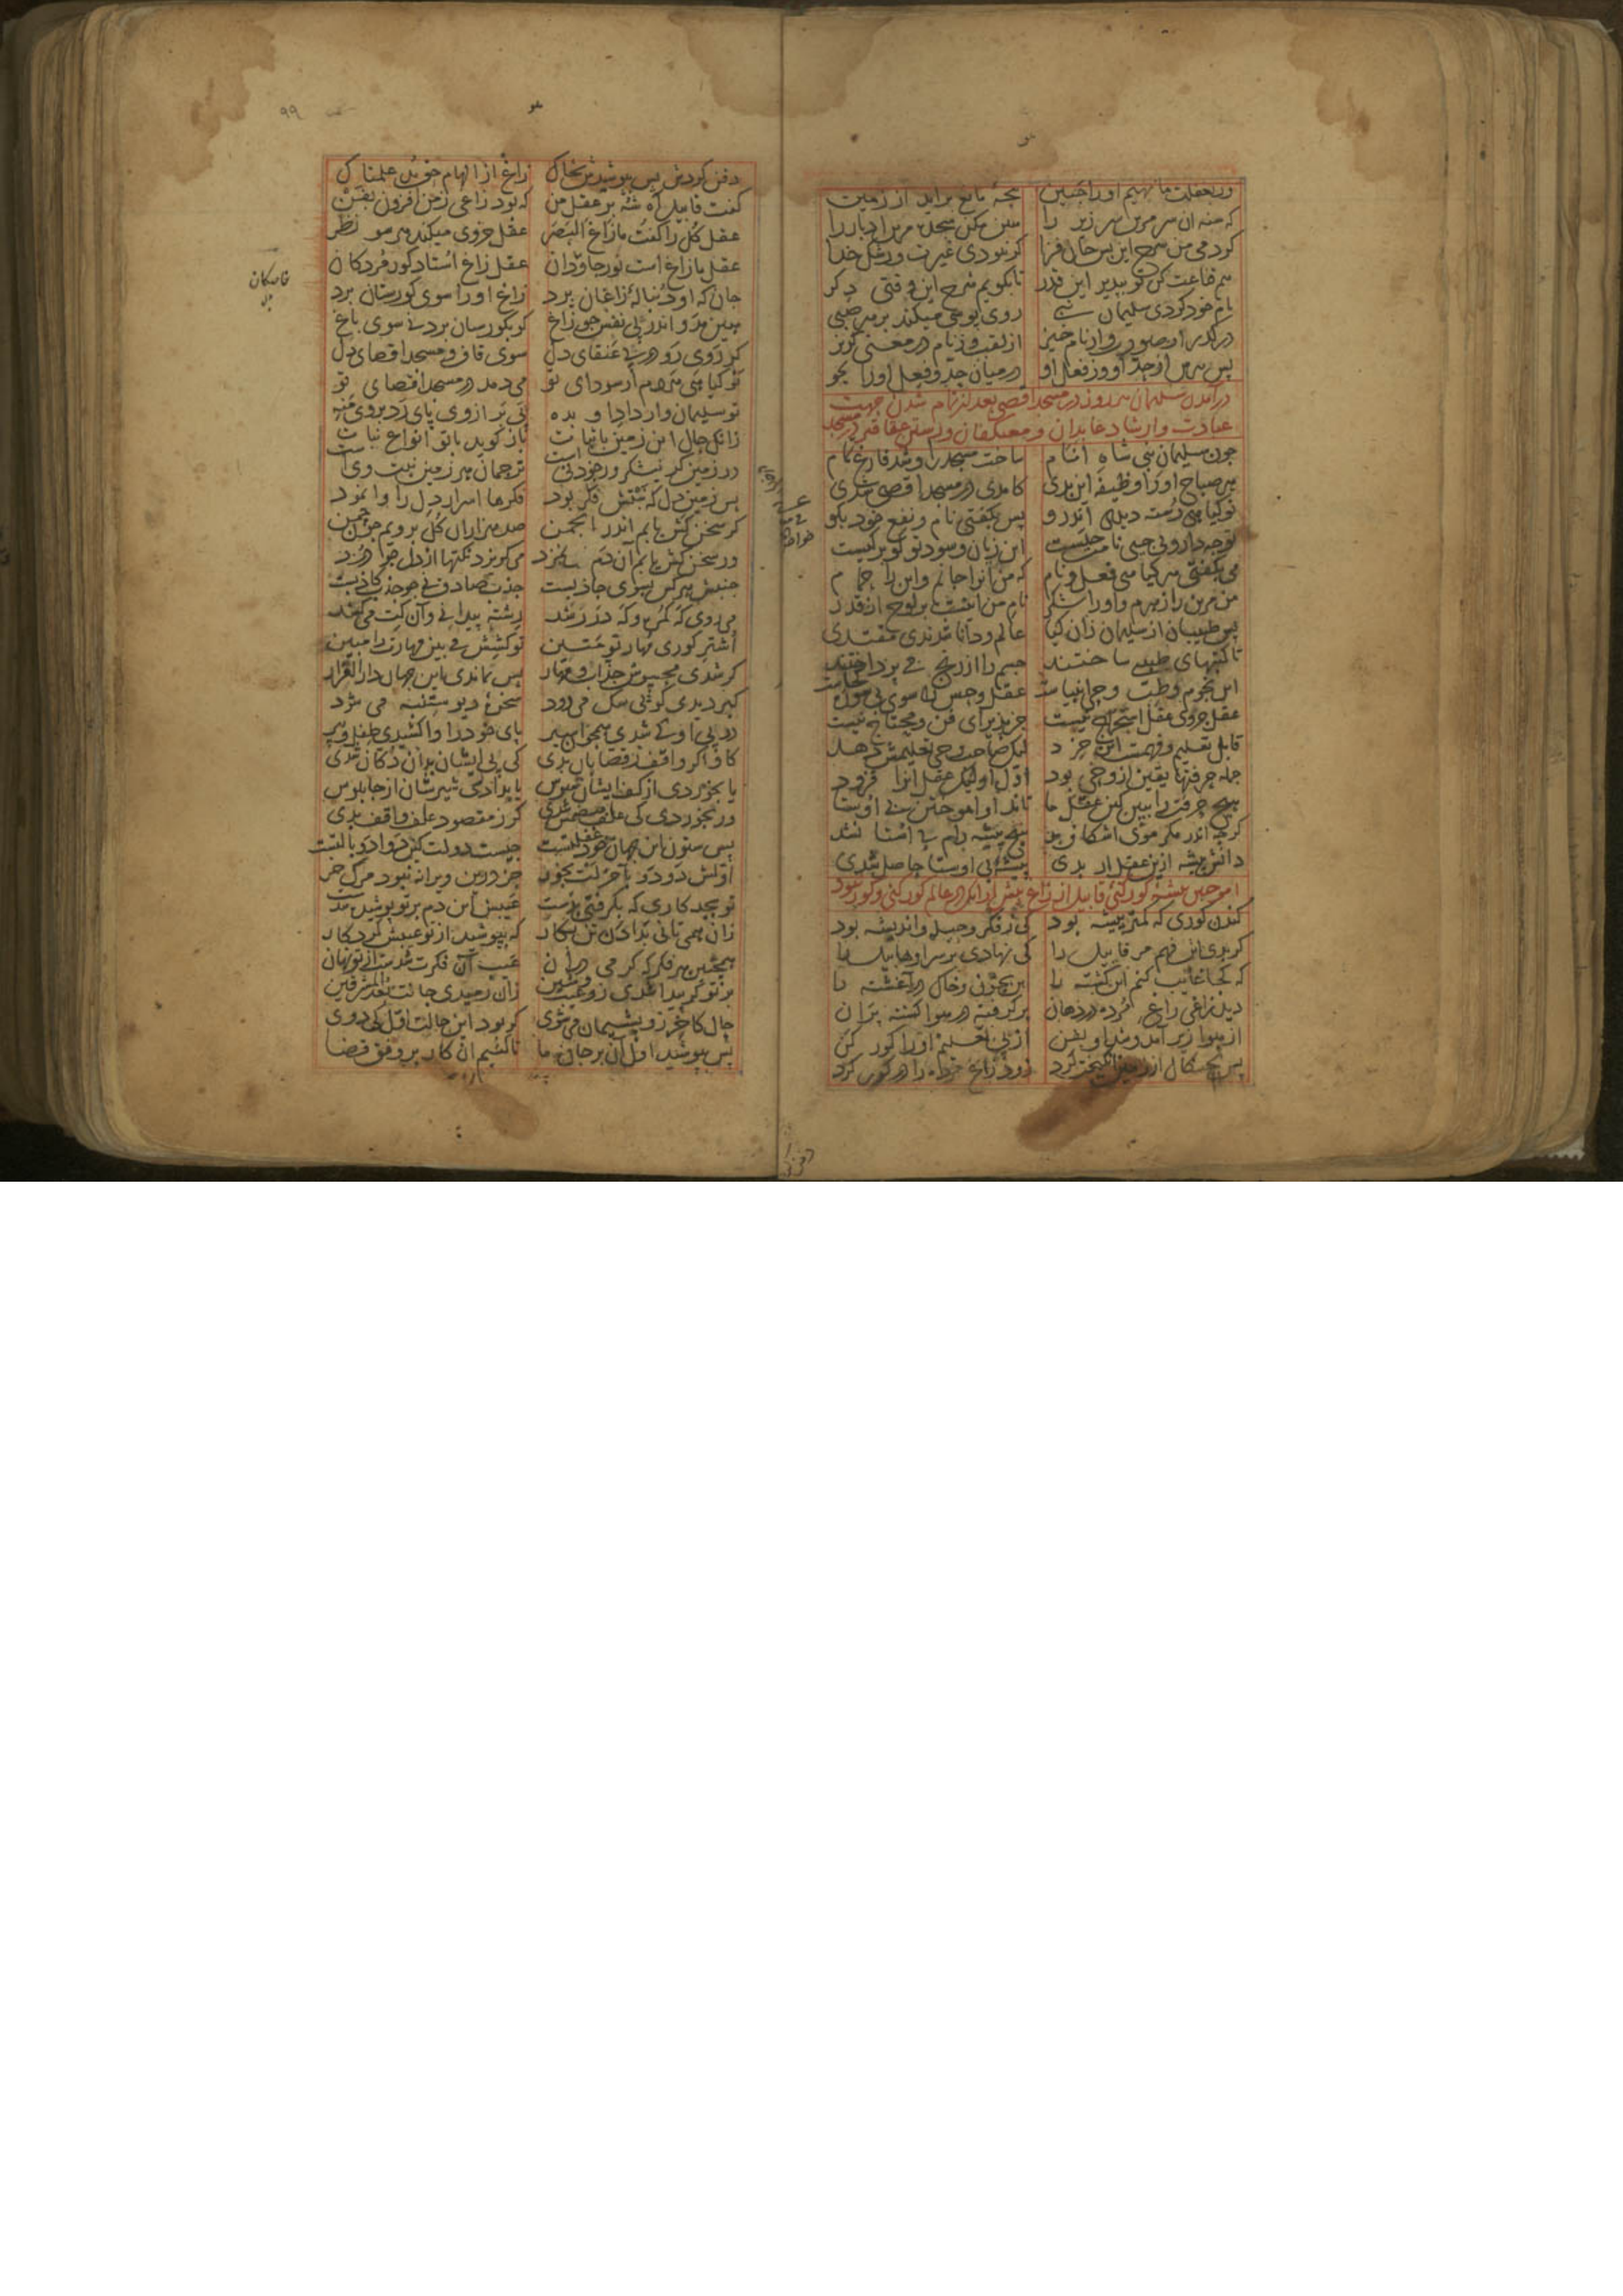 ور بغفلت ما نهیم اورا جبین پنجهٔ مانع براید از زمین
که منه آن سر مرین سر زیر را هین مکن سجده مرین ادبار را
کردمی من شرح این بس جان فزا گر نبودی غیرت و رشک خدا
هم قناعت کن تو بپذیر این قدر تا بگویم شرح این وقتی دگر
نام خود کردی سلیمان نبی روی پوشی میکند بر هر صبی
در گذر از صورت و از نام خیز از لقب وز نام در معنی گریز
پس بپرس از حد او وز فعل او در میان حد و فعل اورا بجو
درآمدن سلیمان هر روز در مسجد اقصی بعد از تمام شدن جهت
عبادت و ارشاد عابدان و معتکفان و رستن عقاقیر در مسجد
چون سلیمان نبی شاه انام ساخت مسجد را و شد فارغ تمام
هر صباح اورا وظیفه این بدی کامدی در مسجد اقصی شدی
نوگیاهی رسته دیدی اندرو پس بگفتی نام و نفع خود بگو
تو چه دارویی چیی نامت چیست این زیان و سود تو تو بر کیست
می بگفتی هر گیاهی فعل و نام که من آنرا جانم و این را حمام
من مرین را زهرم و اورا شکر نام من اینست بر لوح از قدر
پس طبیبان از سلیمان زان گیا عالم و دانا شدندی مقتدی
تا کتبهای طبیبی ساختند جسم را از رنج می پرداختند
این نجوم و طب وحی انبیاست عقل و حس را سوی بی سو ره کجاست
عقل جزوی عقل استخراج نیست جز پذیرای فن و محتاج نیست
قابل تعلیم و فهمست این خرد لیک صاحب وحی تعلیمش دهد
جمله حرفتها یقین از وحی بود اول او لیک عقل آنرا فزود
هیچ حرفت را ببین کین عقل ما تاند او آموختن بی اوستا
گرچه اندر مکر موی اشکاف بد هیچ پیشه رام بی استا نشد
دانش پیشه ازین عقل ار بدی پیشه بی اوستا حاصل شدی
آموختن پیشهٔ گورکنی قابیل از زاغ پیش از آنکه در عالم گورکنی و گور بود
کندن گوری که کمتر پیشه بود کی ز فکر و حیله و اندیشه بود
گر بدی این فهم مر قابیل را کی نهادی بر سر او هابیل را
که کجا غایب کنم این کشته را این بخون و خاک در آغشته را
دید زاغی زاغ مرده در دهان بر گرفته در هوا گشته پران
از هوا زیر آمد و شد او بفن از پی تعلیم اورا گور کن
پس بچنگال از زمین انگیخت گرد زود زاغ مرده را در گور کرد
دفن کردش پس بپوشیدش بخاک زاغ از الهام حق بد علمناک
گفت قابیل آه شه بر عقل من که بود زاغی ز من افزون بفن
عقل کل را گفت ما زاغ البصر عقل جزوی میکند هر سو نظر
عقل ما زاغ است نور جاودان عقل زاغ استاد گور مردگان
جان که او دنبالهٔ زاغان پرد زاغ اورا سوی گورستان برد
هین مدو اندر پی نفس چو زاغ کو بگورستان برد نی سوی باغ
گر روی رو در پی عنقای دل سوی قاف و مسجد اقصای دل
نو گیاهی هر دم از سودای تو می دمد در مسجد اقصای تو
تو سلیمان وار داد او بده پی بر از وی پای رد بر وی منه
زانک حال این زمین با ثبات باز گوید با تو انواع نبات
در زمین گر نیشکر ور خود نی است ترجمان هر زمین نبت وی است
پس زمین دل که نبتش فکر بود فکرها اسرار دل را وا نمود
گر سخن کش یابم اندر انجمن صد هزاران گل برویم چون چمن
ور سخن کش یابم آن دم می گریزد نکتها از دل چو دزد
جنبش هر کس بسوی جاذبست جذب صادق نی چو جذب کاذبست
می روی گه گمره و گه در رشد رشته پیدا نی و آن کت می کشد
اشتر کوری مهار تو متین تو کشش می بین مهارت را مبین
گر شدی محسوس جذاب و مهار پس نماندی این جهان دار القرار
گبر دیدی کو پی سگ می رود سخرهٔ دیو ستنبه می شود
در پی او کی شدی همچو اسیر پای خود را وا کشیدی طفل و پیر
گاو اگر واقف ز قصابان بدی کی پی ایشان بدان دکان شدی
یا بخوردی از کف ایشان سبوس یا بدادی شیرشان از چاپلوس
ور بخوردی کی علف هضمش شدی گر ز مقصود علف واقف بدی
پس ستون این جهان خود غفلتست چیست دولت کین دوادو با لتست
اولش دو دو بآخر لت بخور جز درین ویرانه نبود مرگ خر
تو بجد کاری که بگرفتی بدست عیبش این دم بر تو پوشیده شدست
زان همی تانی بدادن تن بکار که بپوشید از تو عیبش کردگار
همچنین هر فکر که گرمی در آن عیب آن فکرت شدست از تو نهان
بر تو گر پیدا شدی زو عیب و شین زان رمیدی جانت بعد المشرقین
حال کآخر زو پشیمان می شوی گر بود این حالت اول کی دوی
پس بپوشید اول آن بر جان ما تا کنیم آن کار بر وفق قضا
۹۹